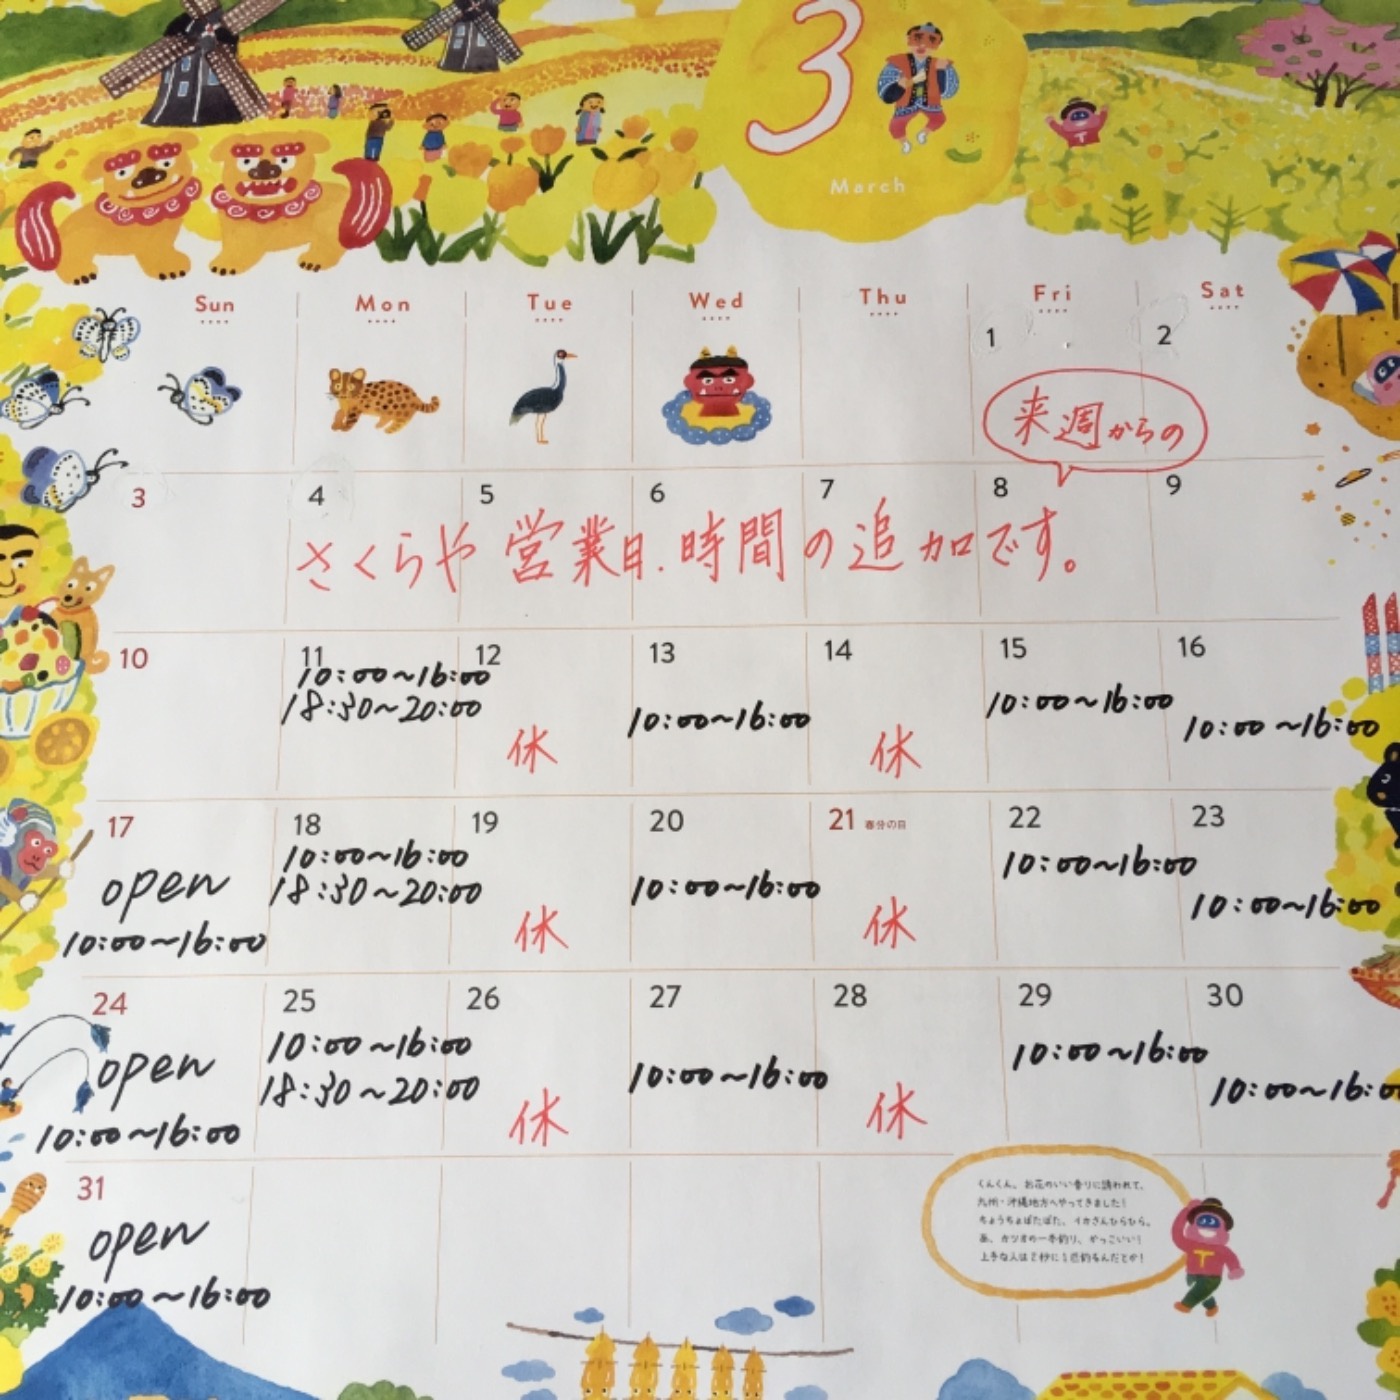 3
March
Sun Mon Tue Wed Thu Fri Sat
1 2
来週からの
3 4 5 6 7 8 9
さくらや 営業日.時間の追加です。
10 11 12 13 14 15 16
10:00~16:00
18:30~20:00
休
10:00~16:00
休
10:00~16:00
10:00~16:00
17 18 19 20 21 春分の日 22 23
open
10:00~16:00
10:00~16:00
18:30~20:00
休
10:00~16:00
休
10:00~16:00
10:00~16:00
24 25 26 27 28 29 30
open
10:00~16:00
10:00~16:00
18:30~20:00
休
10:00~16:00
休
10:00~16:00
10:00~16:00
31
open
10:00~16:00
くんくん、お花のいい香りに誘われて、
九州・沖縄地方へやってきました!
ちょうちょぱたぱた、イカさんひらひら。
あ、カツオの一本釣り、かっこいい!
上手な人は2秒に1匹釣るんだとか!
T